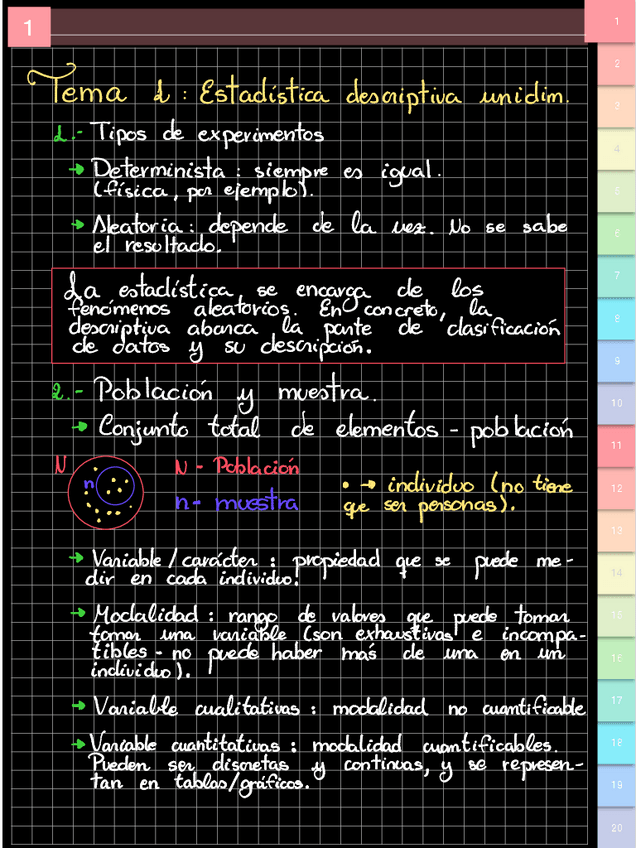 1
Tema 1 : Estadística descriptiva unidim.
1.- Tipos de experimentos
→ Determinista : siempre es igual.
(física, por ejemplo).
→ Aleatoria : depende de la vez. No se sabe
el resultado.
La estadística, se encarga de los
fenómenos aleatorios. En concreto, la
descriptiva abarca la parte de clasificación
de datos y su descripción.
2.- Población y muestra.
→ Conjunto total de elementos - población
N
n
N - Población
n - muestra
• → individuo (no tiene
que ser personas).
→ Variable / carácter : propiedad que se puede me-
dir en cada individuo.
→ Modalidad : rango de valores que puede tomar
tomar una variable (son exhaustivas e incompa-
tibles - no puede haber más de una en un
individuo).
→ Variable cualitativas : modalidad no cuantificable
→ Variable cuantitativas : modalidad cuantificables.
Pueden ser discretas y continuas, y se represen-
tan en tablas/gráficos.
1
2
3
4
5
6
7
8
9
10
11
12
13
14
15
16
17
18
19
20